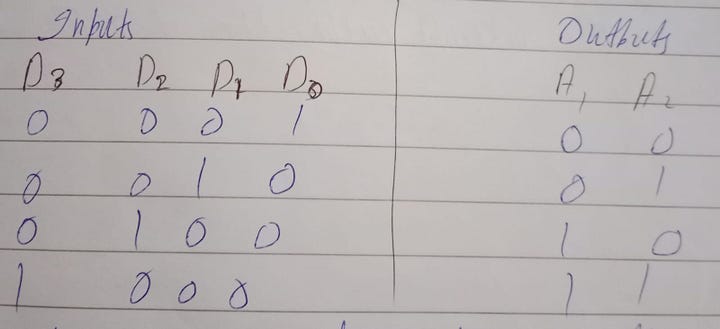 Inputs Outputs
D3 D2 D1 D0 A1 A2
0 0 0 1 0 0
0 0 1 0 0 1
0 1 0 0 1 0
1 0 0 0 1 1